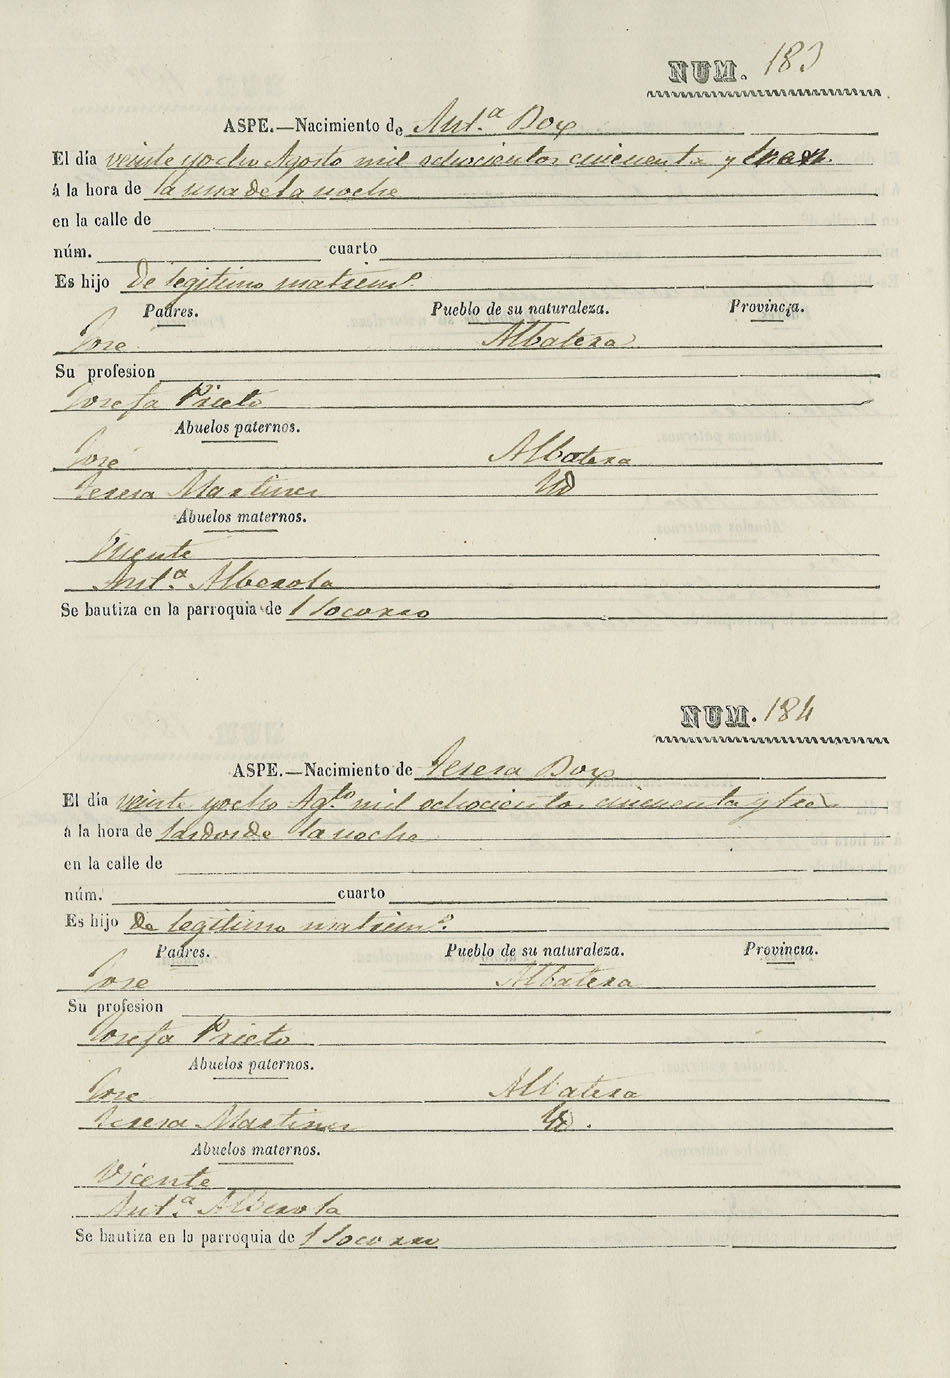 NUM. 183
ASPE.—Nacimiento de Ant.ª Box
El día veinte y ocho Agosto mil ochocientos cincuenta y tres.
á la hora de la una de la noche
en la calle de
núm. cuarto
Es hijo de legitimo matrim.º
Padres. Pueblo de su naturaleza. Provincia.
Jose Albatera
Su profesion
Josefa Prieto
Abuelos paternos.
José Albatera
Teresa Martinez Yd
Abuelos maternos.
Vicente
Ant.ª Alberola
Se bautiza en la parroquia de l Socorro
NUM. 184
ASPE.—Nacimiento de Teresa Box
El día veinte y ocho Ag.to mil ochocientos cincuenta y tres
á la hora de las dos de la noche
en la calle de
núm. cuarto
Es hijo de legitimo matrim.º
Padres. Pueblo de su naturaleza. Provincia.
Jose Albatera
Su profesion
Josefa Prieto
Abuelos paternos.
Jose Albatera
Teresa Martinez Yd.
Abuelos maternos.
Vicente
Ant.ª Alberola
Se bautiza en la parroquia de l Socorro